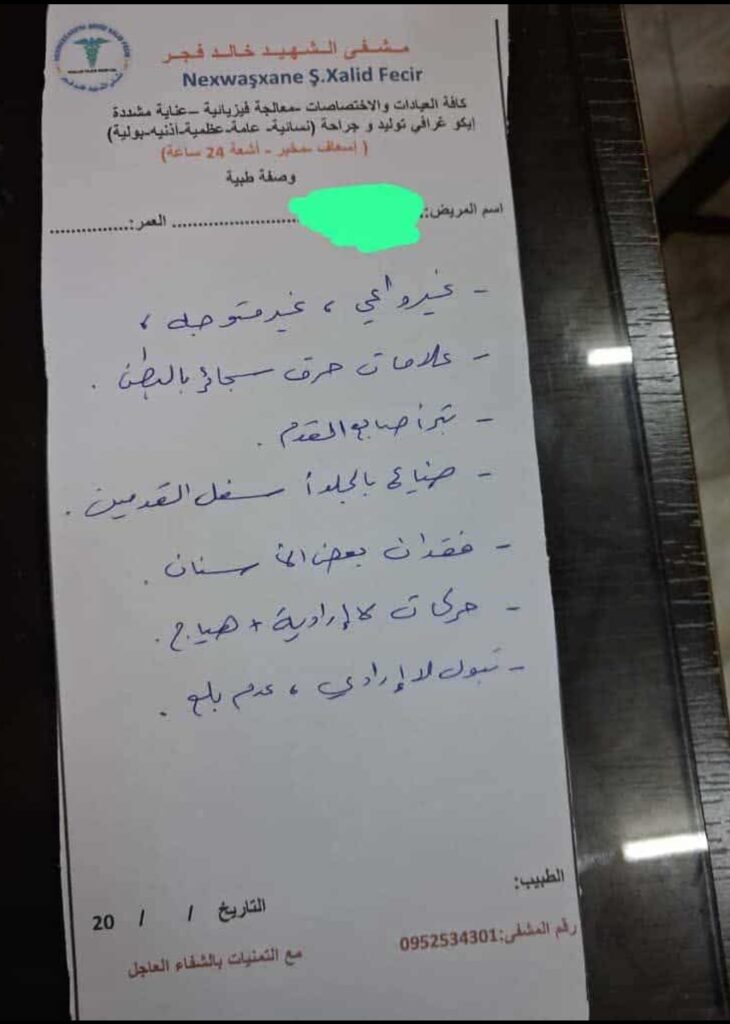 مشفى الشهيد خالد فجر
Nexwaşxane Ş.Xalid Fecir
كافة العيادات والاختصاصات -معالجة فيزيائية -عناية مشددة
إيكو غرافي توليد و جراحة (نسائية- عامة-عظمية-أذنيه-بولية)
( إسعاف -مخبر - أشعة 24 ساعة)
وصفة طبية
اسم المريض: العمر:
- غير واعي ، غير متوجه ،
- علامات حرق سجائر بالبطن .
- بتر أصابع القدم .
- ضياع بالجلد أسفل القدمين .
- فقدان بعض الأسنان .
- حركات لا إرادية + هياج .
- تبول لا إرادي ، عدم بلع .
الطبيب:
التاريخ / / 20
رقم المشفى:0952534301
مع التمنيات بالشفاء العاجل